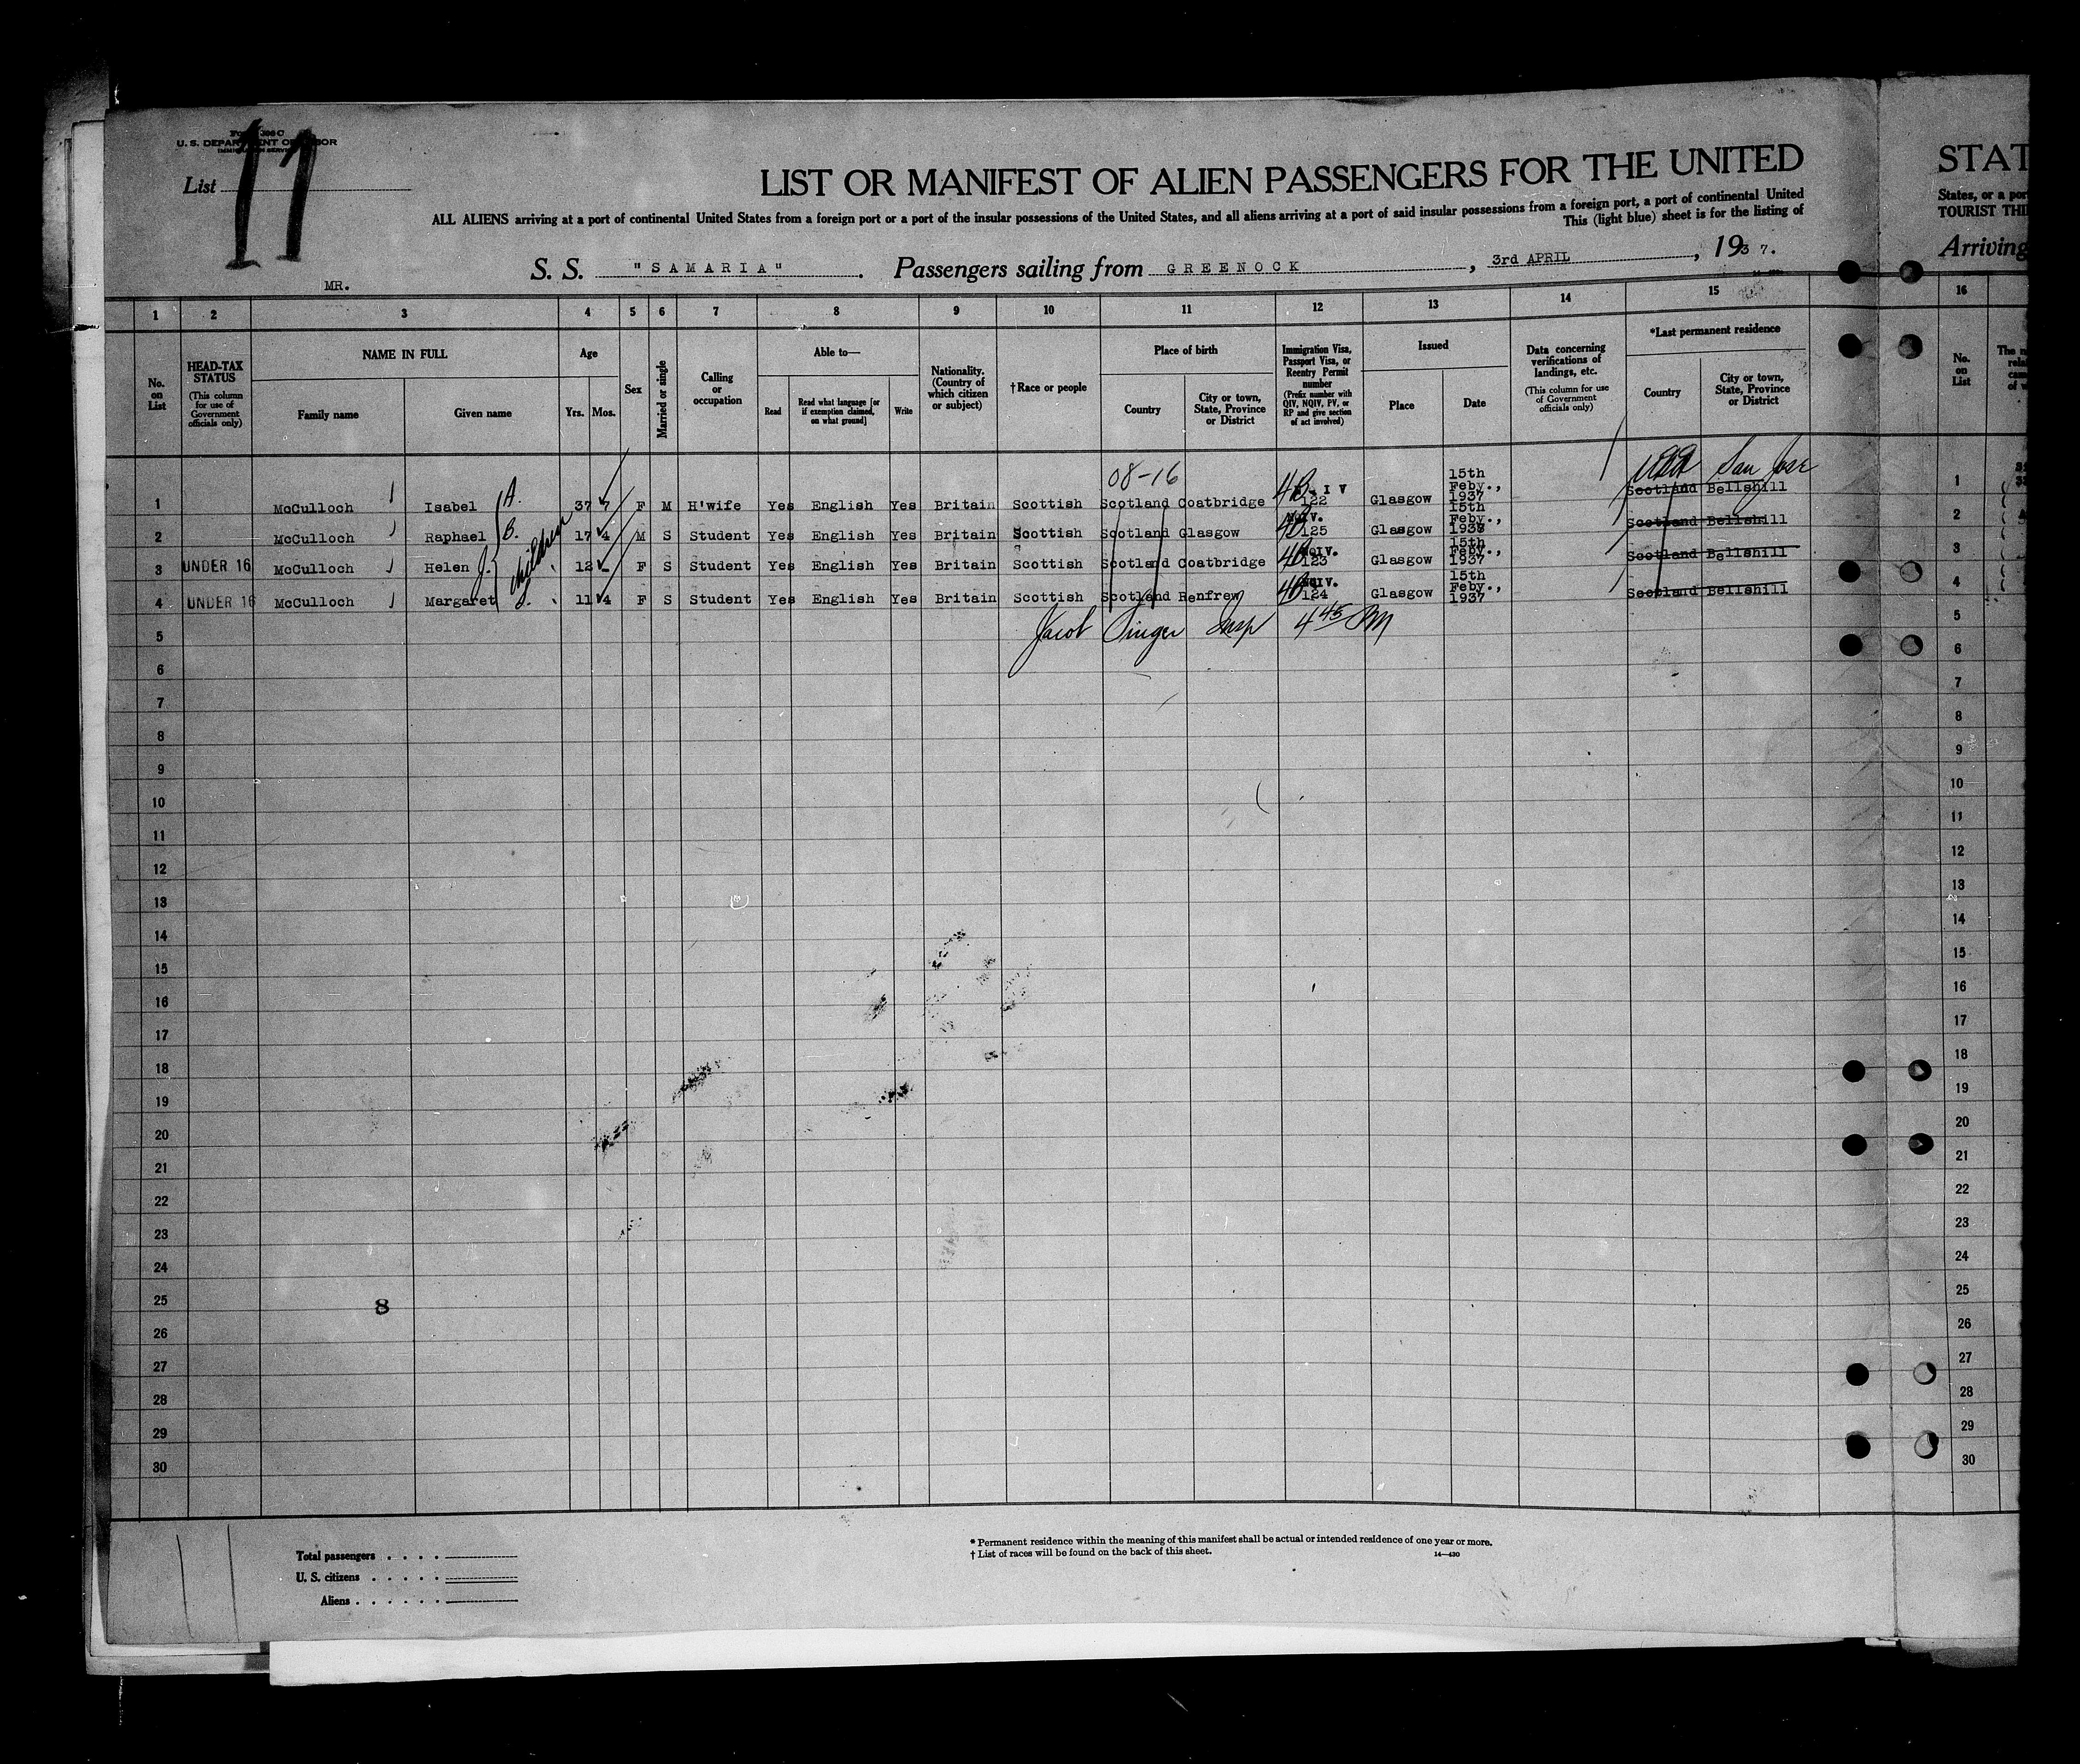 U. S. DEPARTMENT OF LABOR
List 11
LIST OR MANIFEST OF ALIEN PASSENGERS FOR THE UNITED STAT
ALL ALIENS arriving at a port of continental United States from a foreign port or a port of the insular possessions of the United States, and all aliens arriving at a port of said insular possessions from a foreign port, a port of continental United States, or a por
This (light blue) sheet is for the listing of TOURIST THI
S. S. "SAMARIA" . Passengers sailing from GREENOCK , 3rd APRIL , 1937. Arriving
MR.
1 2 3 4 5 6 7 8 9 10 11 12 13 14 15 16
No. on List
HEAD-TAX STATUS (This column for use of Government officials only)
NAME IN FULL Family name Given name
Age Yrs. Mos.
Sex
Married or single
Calling or occupation
Able to— Read Read what language [or if exemption claimed, on what ground] Write
Nationality. (Country of which citizen or subject)
†Race or people
Place of birth Country City or town, State, Province or District
Immigration Visa, Passport Visa, or Reentry Permit number (Prefix number with QIV, NQIV, PV, or RP and give section of act involved)
Issued Place Date
Data concerning verifications of landings, etc. (This column for use of Government officials only)
*Last permanent residence Country City or town, State, Province or District
No. on List
08-16 San Jose
1 McCulloch Isabel A. 37 7 F M H'wife Yes English Yes Britain Scottish Scotland Coatbridge 4B 122 Glasgow 15th Feby., 1937 Scotland Bellshill 1
2 McCulloch Raphael B. 17 4 M S Student Yes English Yes Britain Scottish Scotland Glasgow 4B 125 Glasgow 15th Feby., 1937 Scotland Bellshill 2
children
3 UNDER 16 McCulloch Helen J. 12 - F S Student Yes English Yes Britain Scottish Scotland Coatbridge 4B NQIV. 123 Glasgow 15th Feby., 1937 Scotland Bellshill 3
4 UNDER 16 McCulloch Margaret 11 4 F S Student Yes English Yes Britain Scottish Scotland Renfrew 4B NQIV. 124 Glasgow 15th Feby., 1937 Scotland Bellshill 4
5 Jacob Singer Insp 4 45 PM 5
6 6
7 7
8 8
9 9
10 10
11 11
12 12
13 13
14 14
15 15
16 16
17 17
18 18
19 19
20 20
21 21
22 22
23 23
24 24
25 8 25
26 26
27 27
28 28
29 29
30 30
Total passengers . . . .
U. S. citizens . . . . .
Aliens . . . . . .
* Permanent residence within the meaning of this manifest shall be actual or intended residence of one year or more.
† List of races will be found on the back of this sheet. 14—430